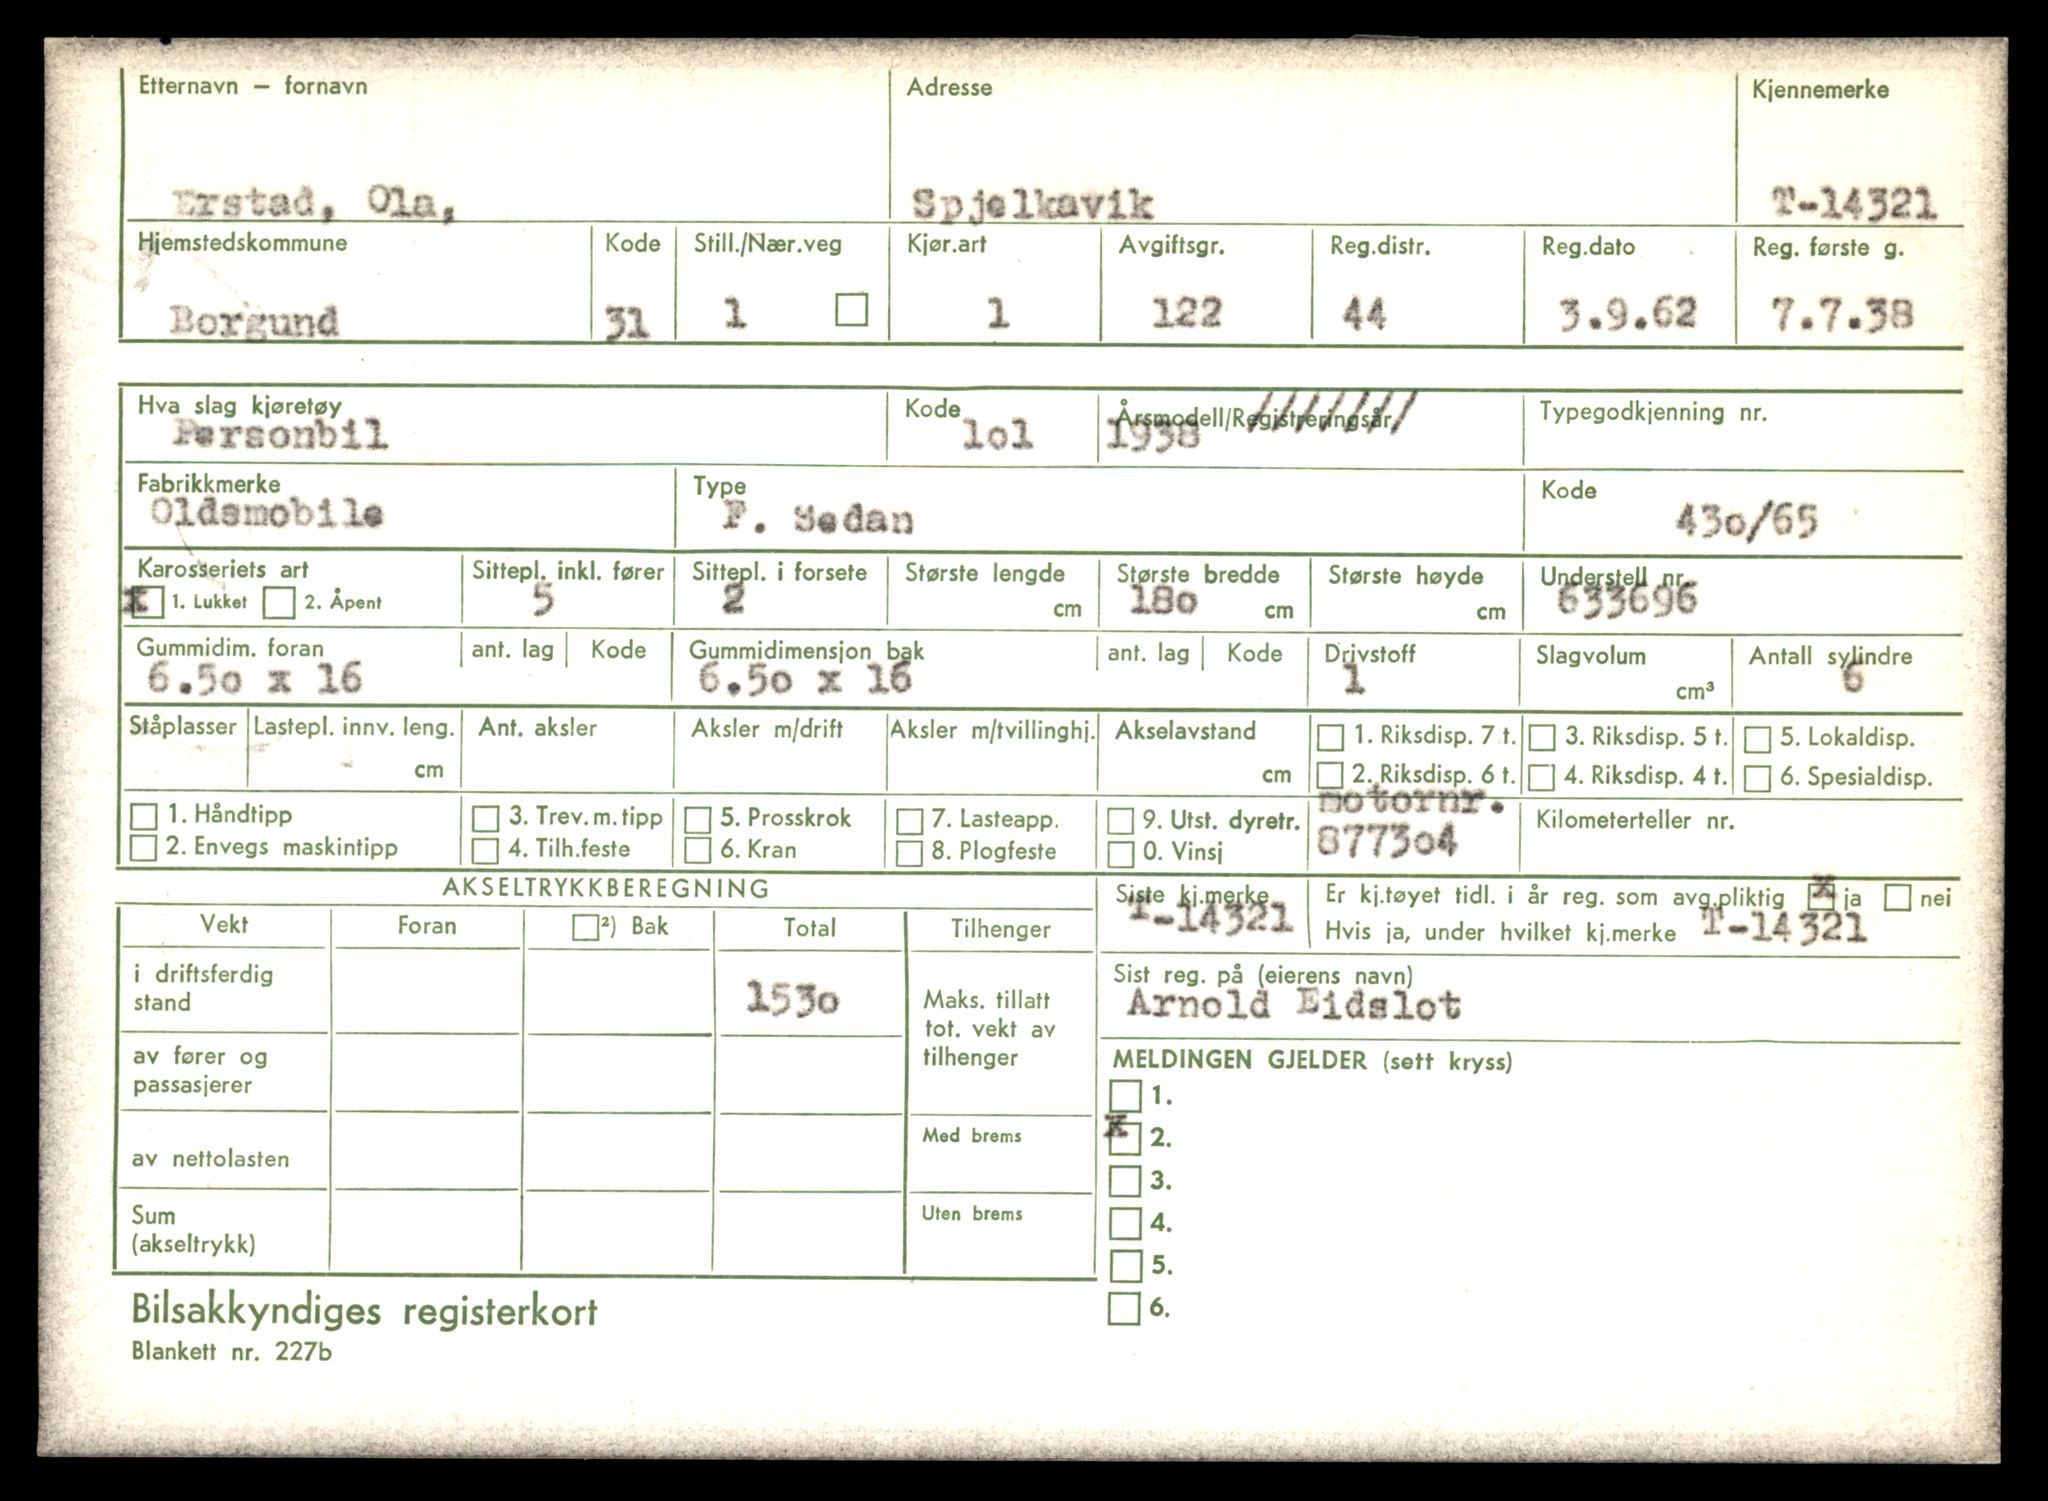 Etternavn – fornavn Adresse Kjennemerke
Erstad, Ola, Spjelkavik T-14321
Hjemstedskommune Kode Still./Nær.veg Kjør.art Avgiftsgr. Reg.distr. Reg.dato Reg. første g.
Borgund 31 1 1 122 44 3.9.62 7.7.38
Hva slag kjøretøy Kode Årsmodell/Registreringsår Typegodkjenning nr.
Personbil 1o1 1938 ///////
Fabrikkmerke Type Kode
Oldsmobile F. Sedan 43o/65
Karosseriets art Sittepl. inkl. fører Sittepl. i forsete Største lengde Største bredde Største høyde Understell nr.
x 1. Lukket 2. Åpent 5 2 cm 18o cm cm 633696
Gummidim. foran ant. lag Kode Gummidimensjon bak ant. lag Kode Drivstoff Slagvolum Antall sylindre
6.5o x 16 6.5o x 16 1 cm³ 6
Ståplasser Lastepl. innv. leng. Ant. aksler Aksler m/drift Aksler m/tvillinghj. Akselavstand 1. Riksdisp. 7 t. 3. Riksdisp. 5 t. 5. Lokaldisp.
cm cm 2. Riksdisp. 6 t. 4. Riksdisp. 4 t. 6. Spesialdisp.
1. Håndtipp 3. Trev. m. tipp 5. Prosskrok 7. Lasteapp. 9. Utst. dyretr. motornr. Kilometerteller nr.
2. Envegs maskintipp 4. Tilh.feste 6. Kran 8. Plogfeste 0. Vinsj 8773o4
AKSELTRYKKBEREGNING Siste kj.merke Er kj.tøyet tidl. i år reg. som avg.pliktig x ja nei
Vekt Foran ²) Bak Total Tilhenger T-14321 Hvis ja, under hvilket kj.merke T-14321
i driftsferdig stand 153o Maks. tillatt tot. vekt av tilhenger
Sist reg. på (eierens navn)
Arnold Eidslot
av fører og passasjerer
MELDINGEN GJELDER (sett kryss)
1.
x 2.
av nettolasten Med brems
3.
4.
Sum (akseltrykk) Uten brems
5.
6.
Bilsakkyndiges registerkort
Blankett nr. 227b